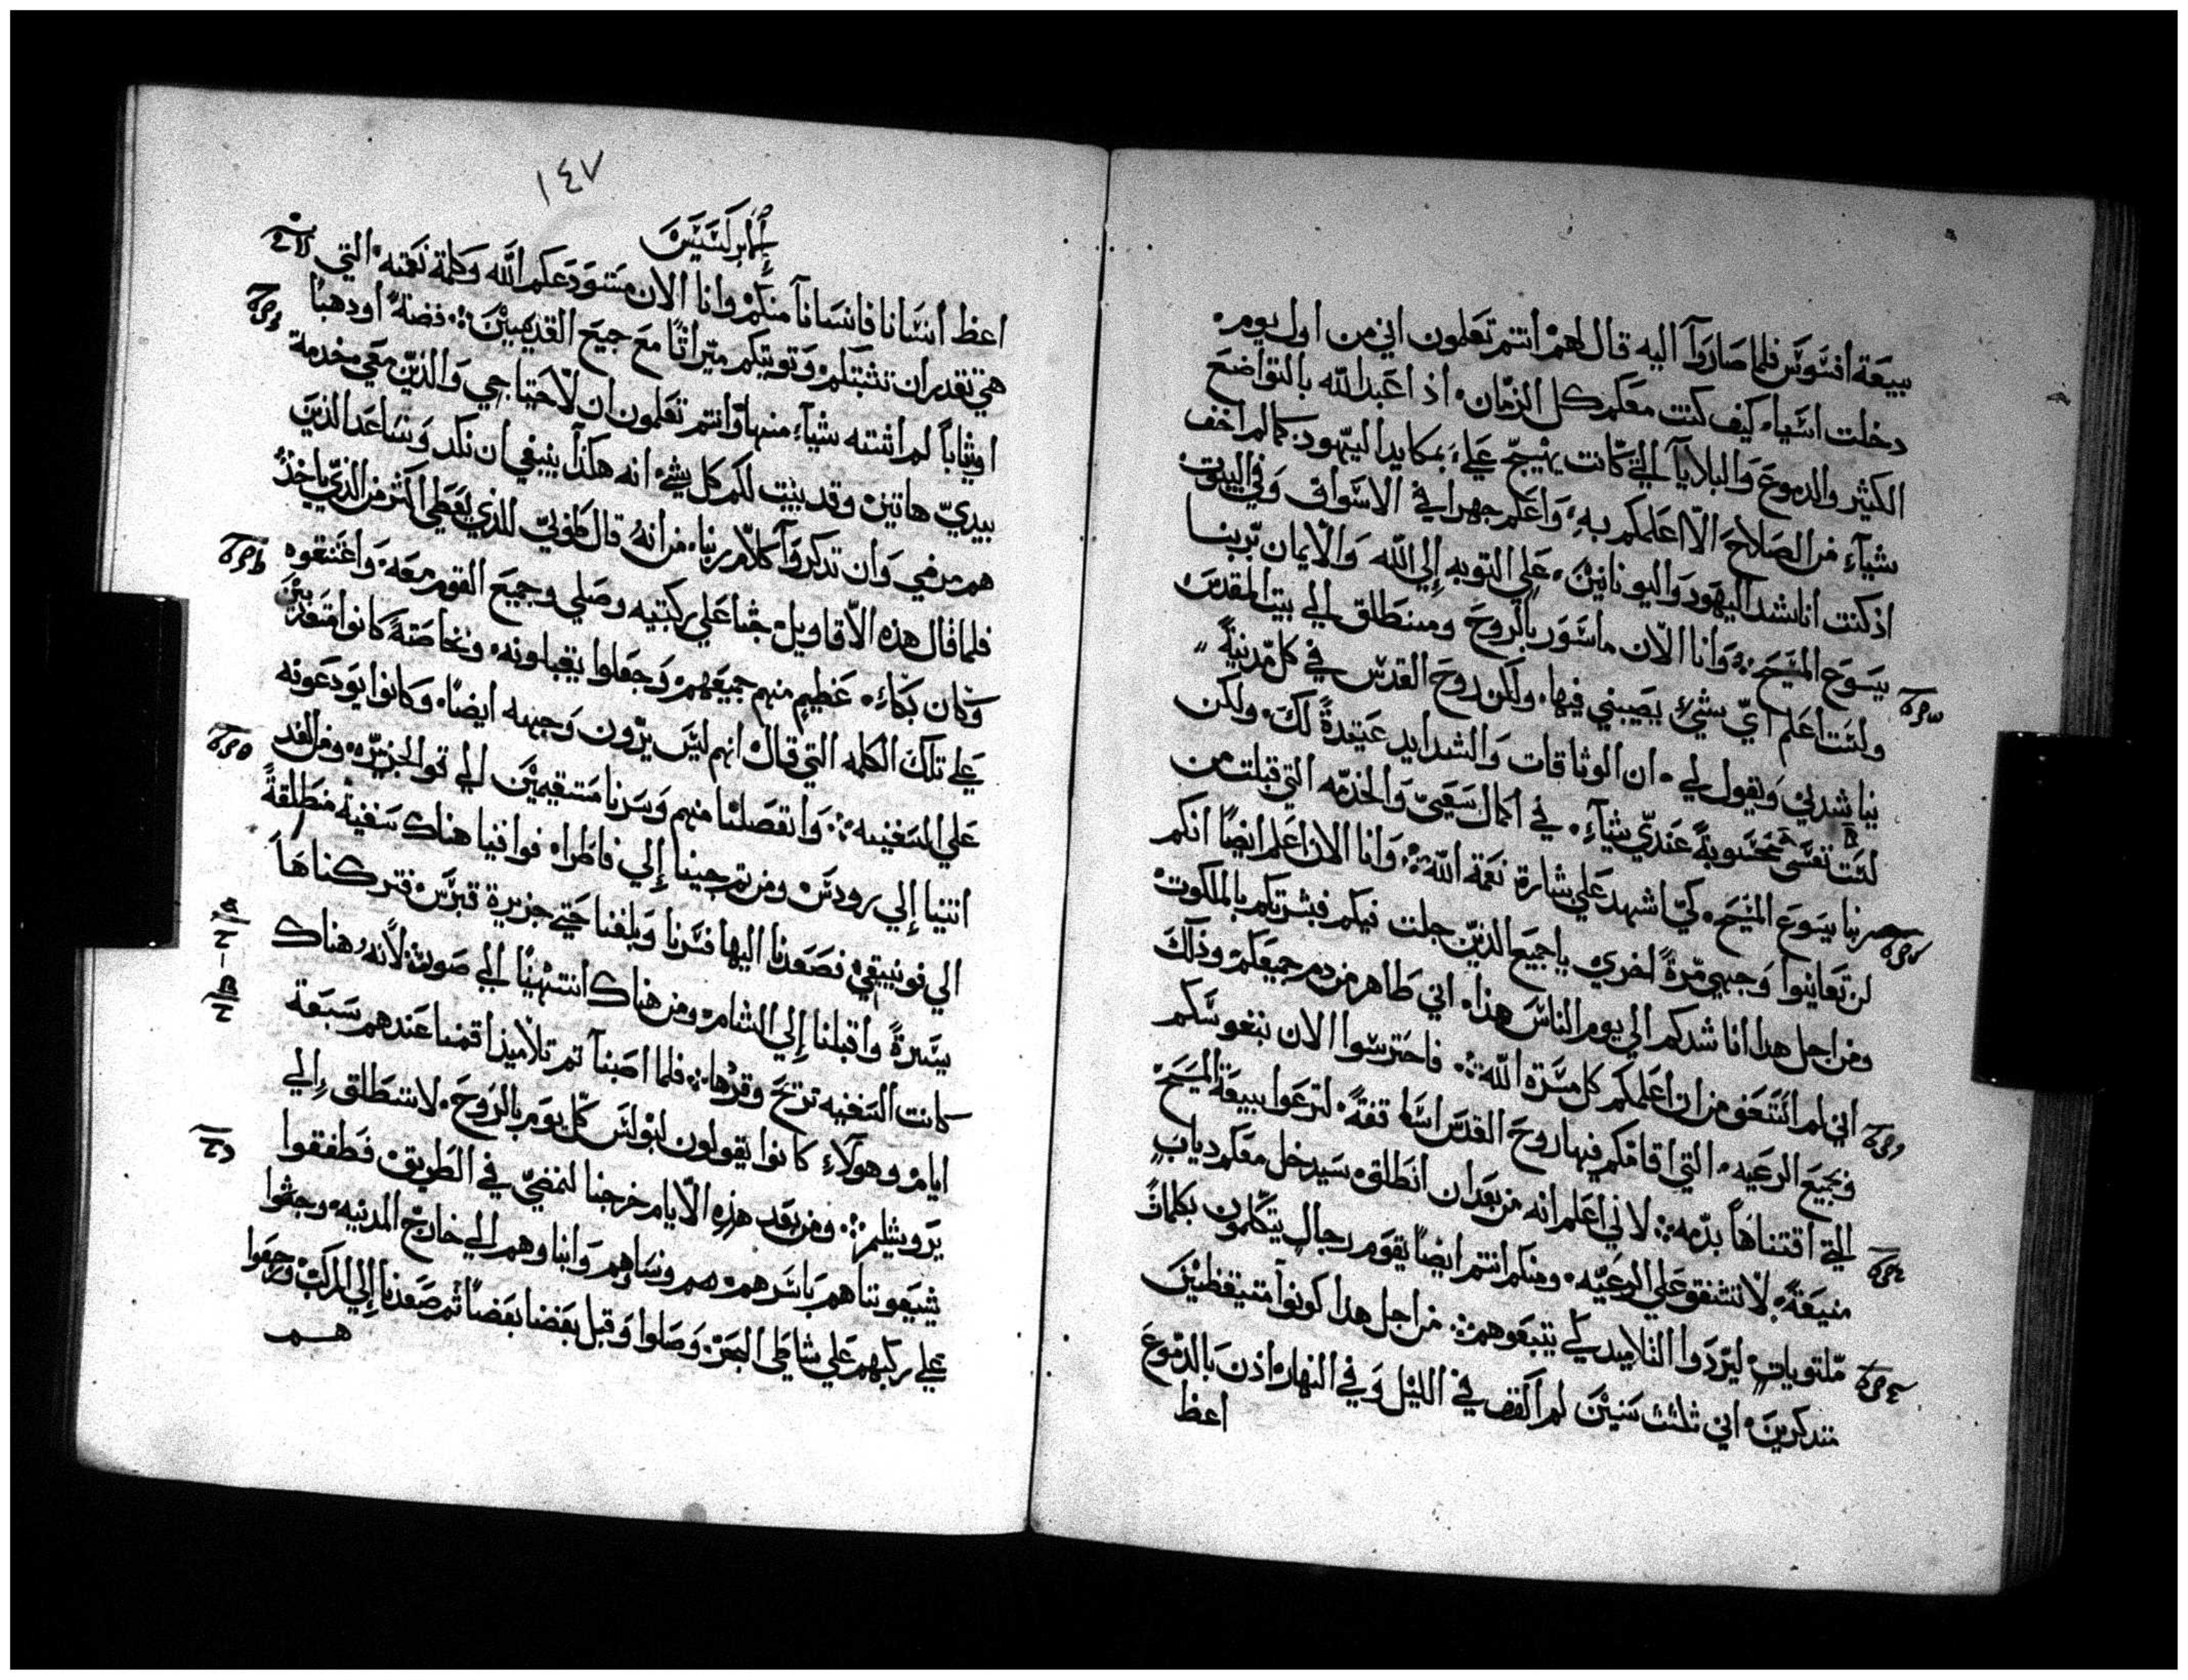 بيعة افسوس فلما صاروا اليه قال لهم انتم تعلمون اني من اول يوم
دخلت اسيا كيف كنت معكم كل الزمان اذ اعبد الله بالتواضع
الكثير والدموع والبلايا التي كانت يهيج علي بمكايد اليهود كما لم اخف
شياء من الصلاح الا اعلمكم به واعلم جهرا في الاسواق وفي البيوت
اذ كنت اناشد اليهود واليونانين علي التوبه إلي الله والايمان بربنا
يسوع المسيح وانا الان ماسور بالروح ومنطلق الي بيت المقدس
ولست اعلم اي شيء يصيبني فيها ولكن روح القدس في كل مدينة
يناشدني ويقول لي ان الوثاقات والشدايد عتيدة لك ولكن
ليست نفسي محسوبة عندي شياء في اكمال سعيي والخدمه التي قبلت من
ربنا يسوع المسيح كي اشهد علي بشارة نعمة الله وانا الان اعلم ايضا انكم
لن تعاينوا وجهي مرة اخري يا جميع الذين جلت فيكم فبشرتكم بالملكوت
ومن اجل هدا اناشدكم الي يوم الناس هذا اني طاهر من دم جميعكم وذلك
اني لم استعف من ان اعلمكم كل مسرة الله فاحترسوا الان بنفوسكم
وبجميع الرعيه التي اقامكم فيها روح القدس اساقفة لترعوا بيعة المسيح
التي اقتناها بدمه لاني اعلم انه من بعد ان انطلق سيدخل معكم دياب
منيعة لا تشفق علي الرعيه ومنكم انتم ايضا يقوم رجال يتكلمون بكلام
ملتويات ليردوا التلاميد كي يتبعوهم من اجل هدا كونوا متيقظين
متدكرين اني ثلثت سنين لم اكفف في الليل وفي النهار اذن بالدموع
اعظ
١٤٧
الابركسيس
اعظ انسانا فانسانا منكم وانا الان مستودعكم الله وكلمة نعمته التي
هي تقدر ان تثبتكم وتويتكم ميراثا مع جميع القديسين فضة او دهبا
او ثيابا لم اشته شياء منها وانتم تعلمون ان لاحتياجي والذين معي خدمة
بيدي هاتين وقد بينت لكم كل شيء انه هكذا ينبغي ان نكد ونساعد الذين
هم مرضي وان تدكروا كلام ربنا من انه قال طوبي للذي يعطي اكثر من الذي ياخذ
فلما قال هذه الاقاويل جثا علي ركبتيه وصلي وجميع القوم معه واعتنقوه
وكان بكاء عظيم منهم جميعهم وجعلوا يقبلونه وبخاصة كانوا متوزين
علي تلك الكلمه التي قال انهم ليس يرون وجهه ايضا وكانوا يودعونه
علي السفينه وانفصلنا منهم وسرنا مستقيمين الي قو الجزيره ومن الغد
اتينا إلي رودس ومن ثم جينا إلي فاطرا فوافينا هناك سفينة منطلقة
الي فونيقي فصعدنا اليها فسرنا وبلغنا حتي جزيرة قبرس فتركناها
يسرة واقبلنا إلي الشام ومن هناك انتهينا الي صور لانه هناك
كانت السفينه تريح وقرها فلما اصبنا ثم تلاميذ اقمنا عندهم سبعة
ايام وهولاء كانوا يقولون لبولس كل يوم بالروح لا تنطلق الي
يروشيلم ومن بعد هذه الايام خرجنا لنمضي في الطريق فطفقوا
شيعوننا هم باسرهم هم ونساوهم وابناوهم الي خارج المدينه وجثوا
علي ركبهم علي شاطي البحر وصلوا وقبل بعضنا بعضا ثم صعدنا إلي المركب ورجعوا
هم